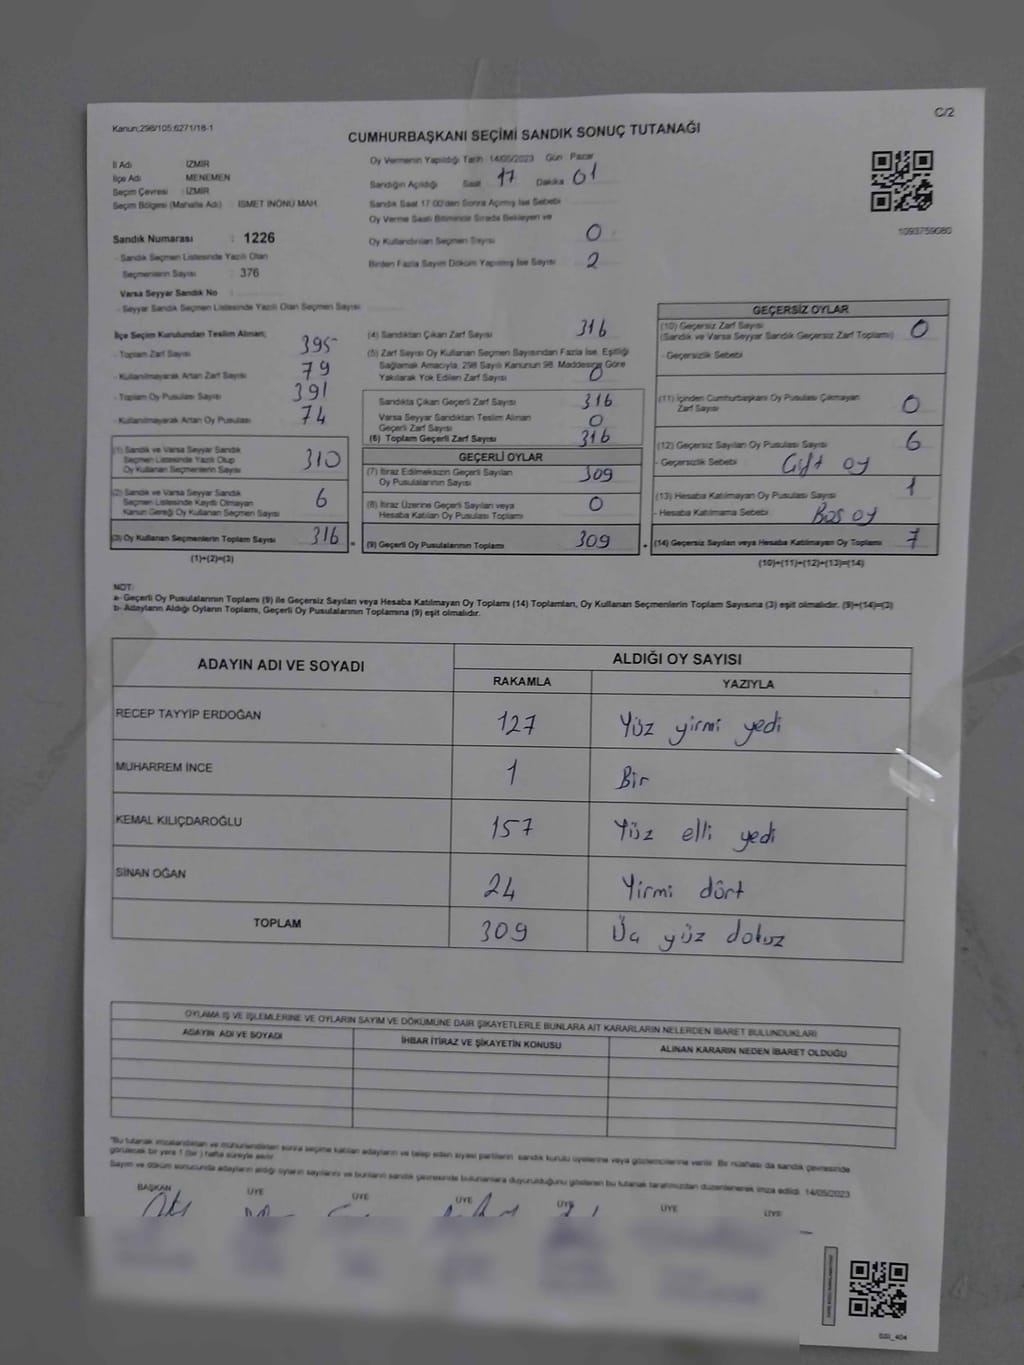 Kanun;298/105;6271/18-1
C/2
CUMHURBAŞKANI SEÇİMİ SANDIK SONUÇ TUTANAĞI
İl Adı : İZMİR
İlçe Adı : MENEMEN
Seçim Çevresi : İZMİR
Seçim Bölgesi (Mahalle Adı) : İSMET İNÖNÜ MAH.
Sandık Numarası : 1226
- Sandık Seçmen Listesinde Yazılı Olan
Seçmenlerin Sayısı : 376
Varsa Seyyar Sandık No :
- Seyyar Sandık Seçmen Listesinde Yazılı Olan Seçmen Sayısı
Oy Vermenin Yapıldığı Tarih 14/05/2023 Gün Pazar
Sandığın Açıldığı Saat 17 Dakika 01
Sandık Saat 17:00'den Sonra Açılmış İse Sebebi
Oy Verme Saati Bitiminde Sırada Bekleyen ve
Oy Kullandırılan Seçmen Sayısı 0
Birden Fazla Sayım Döküm Yapılmış İse Sayısı 2
1093759080
İlçe Seçim Kurulundan Teslim Alınan;
- Toplam Zarf Sayısı 395
- Kullanılmayarak Artan Zarf Sayısı 79
- Toplam Oy Pusulası Sayısı 391
- Kullanılmayarak Artan Oy Pusulası 74
(1) Sandık ve Varsa Seyyar Sandık
Seçmen Listesinde Yazılı Olup
Oy Kullanan Seçmenlerin Sayısı 310
(2) Sandık ve Varsa Seyyar Sandık
Seçmen Listesinde Kayıtlı Olmayan
Kanun Gereği Oy Kullanan Seçmen Sayısı 6
(3) Oy Kullanan Seçmenlerin Toplam Sayısı 316
(1)+(2)=(3)
(4) Sandıktan Çıkan Zarf Sayısı 316
(5) Zarf Sayısı Oy Kullanan Seçmen Sayısından Fazla İse, Eşitliği
Sağlamak Amacıyla, 298 Sayılı Kanunun 98. Maddesine Göre
Yakılarak Yok Edilen Zarf Sayısı 0
Sandıkta Çıkan Geçerli Zarf Sayısı 316
Varsa Seyyar Sandıktan Teslim Alınan
Geçerli Zarf Sayısı 0
(6) Toplam Geçerli Zarf Sayısı 316
GEÇERLİ OYLAR
(7) İtiraz Edilmeksizin Geçerli Sayılan
Oy Pusulalarının Sayısı 309
(8) İtiraz Üzerine Geçerli Sayılan veya
Hesaba Katılan Oy Pusulası Toplamı 0
(9) Geçerli Oy Pusulalarının Toplamı 309
GEÇERSİZ OYLAR
(10) Geçersiz Zarf Sayısı
(Sandık ve Varsa Seyyar Sandık Geçersiz Zarf Toplamı) 0
- Geçersizlik Sebebi
(11) İçinden Cumhurbaşkanı Oy Pusulası Çıkmayan
Zarf Sayısı 0
(12) Geçersiz Sayılan Oy Pusulası Sayısı 6
- Geçersizlik Sebebi Çift oy
(13) Hesaba Katılmayan Oy Pusulası Sayısı 1
- Hesaba Katılmama Sebebi Boş oy
(14) Geçersiz Sayılan veya Hesaba Katılmayan Oy Toplamı 7
(10)+(11)+(12)+(13)=(14)
NOT:
a- Geçerli Oy Pusulalarının Toplamı (9) ile Geçersiz Sayılan veya Hesaba Katılmayan Oy Toplamı (14) Toplamları, Oy Kullanan Seçmenlerin Toplam Sayısına (3) eşit olmalıdır. (9)+(14)=(3)
b- Adayların Aldığı Oyların Toplamı, Geçerli Oy Pusulalarının Toplamına (9) eşit olmalıdır.
ADAYIN ADI VE SOYADI
ALDIĞI OY SAYISI
RAKAMLA YAZIYLA
RECEP TAYYİP ERDOĞAN 127 Yüz yirmi yedi
MUHARREM İNCE 1 Bir
KEMAL KILIÇDAROĞLU 157 Yüz elli yedi
SİNAN OĞAN 24 Yirmi dört
TOPLAM 309 Üç yüz dokuz
OYLAMA İŞ VE İŞLEMLERİNE VE OYLARIN SAYIM VE DÖKÜMÜNE DAİR ŞİKAYETLERLE BUNLARA AİT KARARLARIN NELERDEN İBARET BULUNDUKLARI
ADAYIN ADI VE SOYADI İHBAR İTİRAZ VE ŞİKAYETİN KONUSU ALINAN KARARIN NEDEN İBARET OLDUĞU
"Bu tutanak imzalandıktan ve mühürlendikten sonra seçime katılan adayların ve talep eden siyasi partilerin sandık kurulu üyelerine veya gözlemcilerine verilir. Bir nüshası da sandık çevresinde
görülecek bir yere 1 (bir) hafta süreyle asılır.
Sayım ve döküm sonucunda adayların aldığı oyların sayılarını ve bunların sandık çevresinde bulunanlara duyurulduğunu gösteren bu tutanak tarafımızdan düzenlenerek imza edildi. 14/05/2023
BAŞKAN ÜYE ÜYE ÜYE ÜYE ÜYE ÜYE
SSI_404